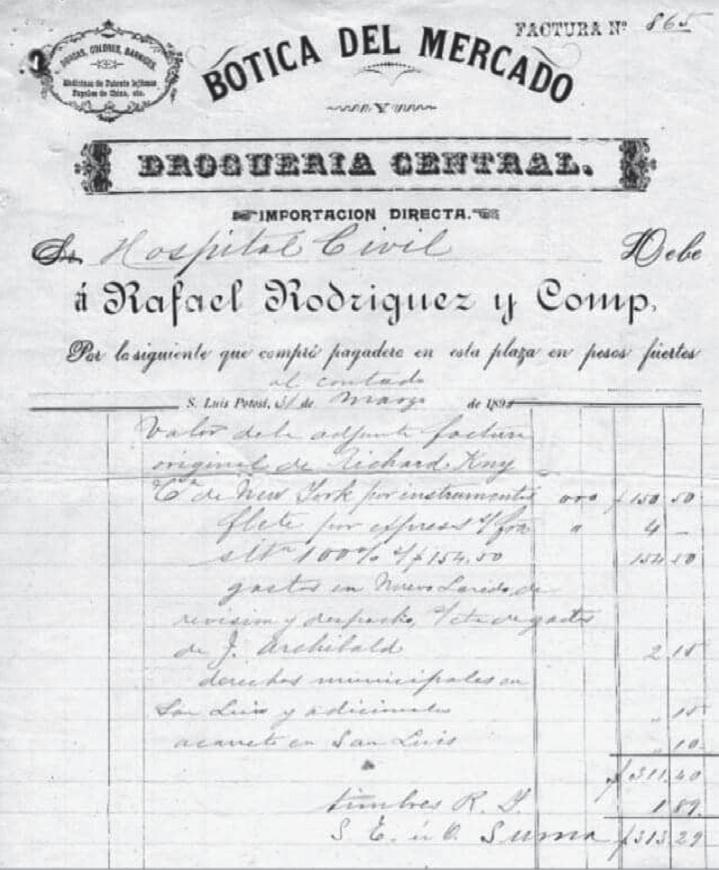 FACTURA Nº 865
DROGAS, COLORES, BARNICES,
Medicinas de Patente legítimas
Papeles de China, etc.
BOTICA DEL MERCADO
Y
DROGUERIA CENTRAL.
IMPORTACION DIRECTA.
Hospital Civil Debe
á Rafael Rodriguez y Comp.
Por lo siguiente que compró pagadero en esta plaza en pesos fuertes
al contado
S. Luis Potosí, 31 de Marzo de 189
Valor de la adjunta factura
original de Richard Kny
Cª de New York por instrumentos oro $150 50
flete por express s/ fra " 4 —
100% s/ $154.50 154 50
gastos en Nuevo Laredo de
revision y despacho, s/ cta de gastos
de J. Archibald 2 15
derechos municipales en
San Luis y adicionales " 15
acarreto en San Luis " 10
$311.40
timbres R. F. 1 89
S. E. ú O. Suma $313.29